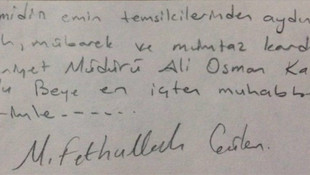 midin emin temsilcilerinden aydın
h, mübarek ve mümtaz kard
niyet Müdürü Ali Osman Ka
Beye en içten muhabb
imle ------
M. Fethullah Gülen.